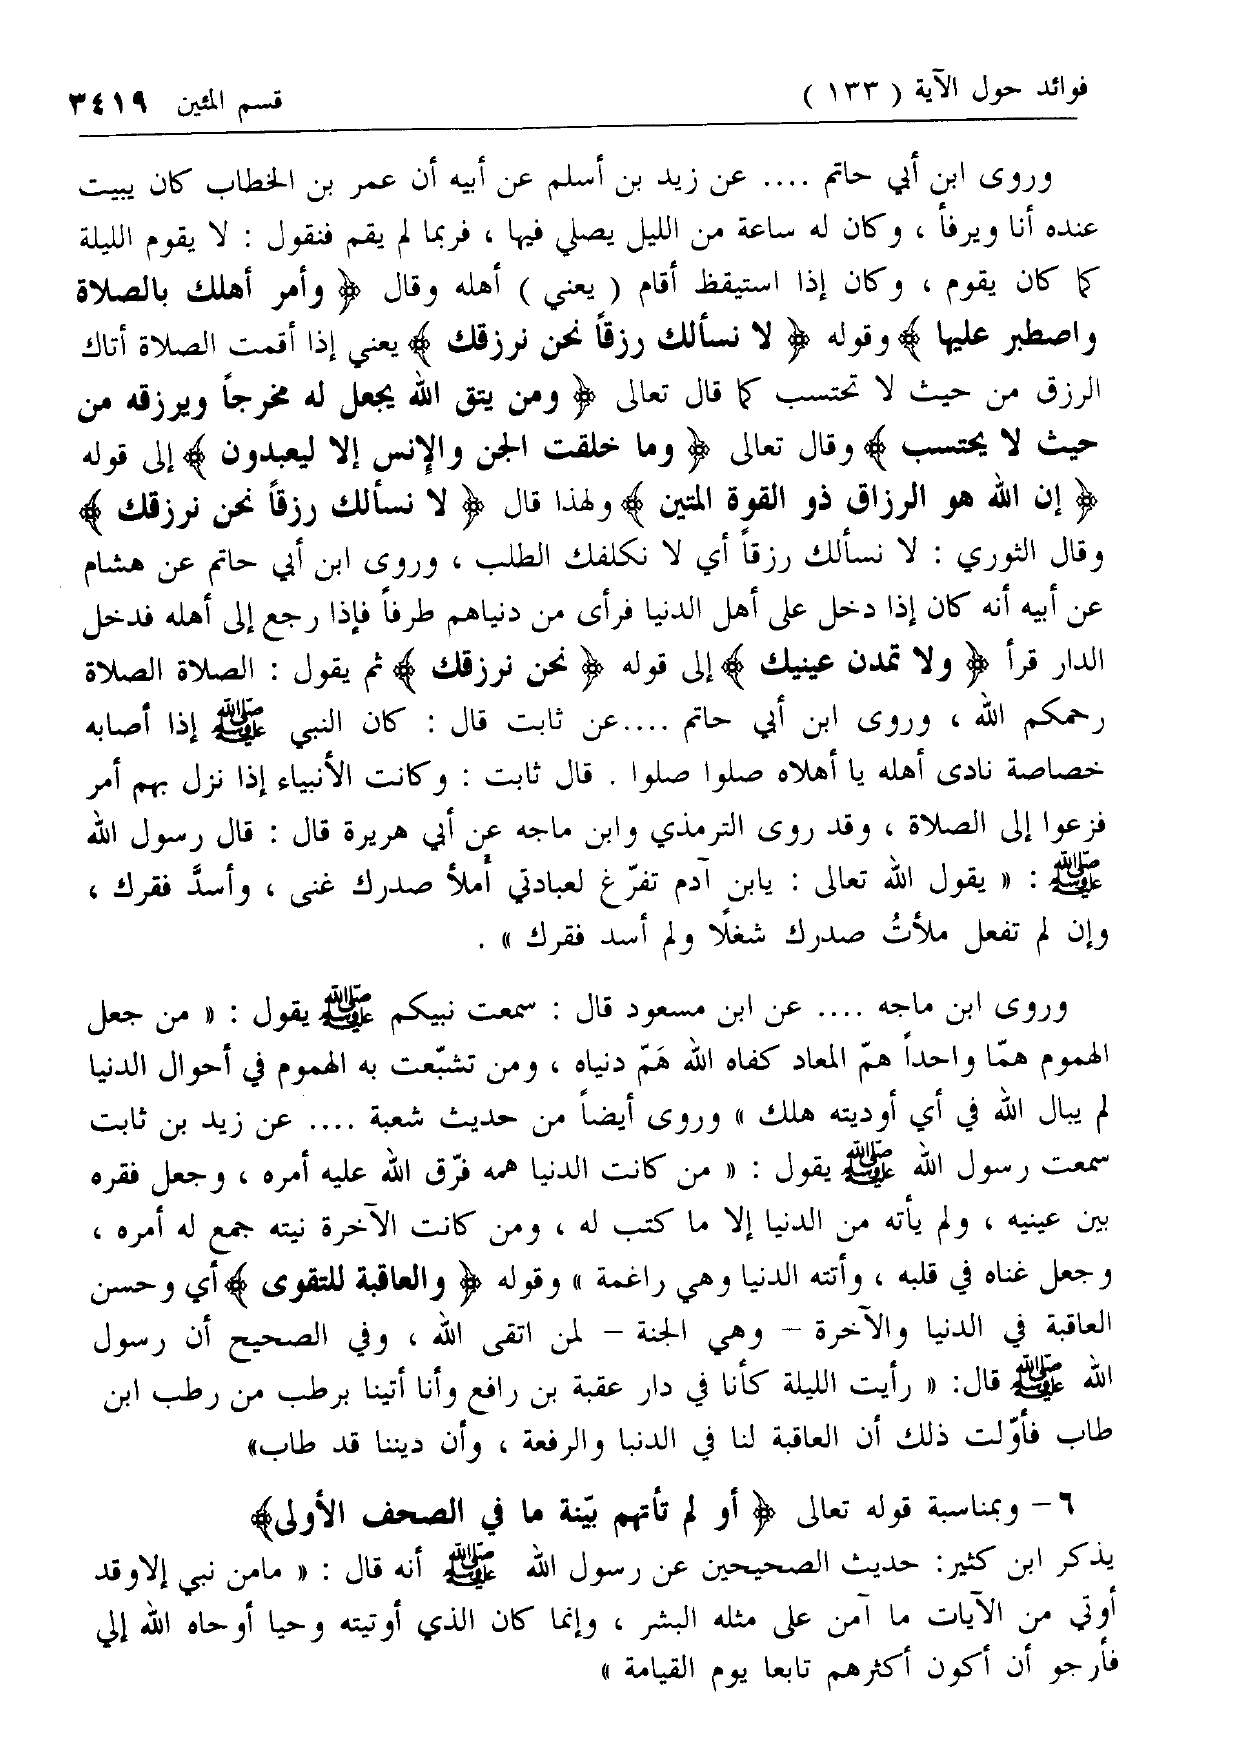 فوائد حول الآية ( ١٣٣ )
قسم المئين ٣٤١٩
وروى ابن أبي حاتم .... عن زيد بن أسلم عن أبيه أن عمر بن الخطاب كان يبيت
عنده أنا ويرفأ ، وكان له ساعة من الليل يصلي فيها ، فربما لم يقم فنقول : لا يقوم الليلة
كما كان يقوم ، وكان إذا استيقظ أقام ( يعني ) أهله وقال ﴿ وأمر أهلك بالصلاة
واصطبر عليها ﴾ وقوله ﴿ لا نسألك رزقاً نحن نرزقك ﴾ يعني إذا أقمت الصلاة أتاك
الرزق من حيث لا تحتسب كما قال تعالى ﴿ ومن يتق الله يجعل له مخرجاً ويرزقه من
حيث لا يحتسب ﴾ وقال تعالى ﴿ وما خلقت الجن والإنس إلا ليعبدون ﴾ إلى قوله
﴿ إن الله هو الرزاق ذو القوة المتين ﴾ ولهذا قال ﴿ لا نسألك رزقاً نحن نرزقك ﴾
وقال الثوري : لا نسألك رزقاً أي لا نكلفك الطلب ، وروى ابن أبي حاتم عن هشام
عن أبيه أنه كان إذا دخل على أهل الدنيا فرأى من دنياهم طرفاً فإذا رجع إلى أهله فدخل
الدار قرأ ﴿ ولا تمدن عينيك ﴾ إلى قوله ﴿ نحن نرزقك ﴾ ثم يقول : الصلاة الصلاة
رحمكم الله ، وروى ابن أبي حاتم ....عن ثابت قال : كان النبي ﷺ إذا أصابه
خصاصة نادى أهله يا أهلاه صلوا صلوا . قال ثابت : وكانت الأنبياء إذا نزل بهم أمر
فزعوا إلى الصلاة ، وقد روى الترمذي وابن ماجه عن أبي هريرة قال : قال رسول الله
ﷺ : « يقول الله تعالى : يابن آدم تفرّغ لعبادتي أملأ صدرك غنى ، وأسدَّ فقرك ،
وإن لم تفعل ملأتُ صدرك شغلًا ولم أسد فقرك » .
وروى ابن ماجه .... عن ابن مسعود قال : سمعت نبيكم ﷺ يقول : « من جعل
الهموم همّا واحداً همّ المعاد كفاه الله هَمّ دنياه ، ومن تشبّعت به الهموم في أحوال الدنيا
لم يبال الله في أي أوديته هلك » وروى أيضاً من حديث شعبة .... عن زيد بن ثابت
سمعت رسول الله ﷺ يقول : « من كانت الدنيا همه فرّق الله عليه أمره ، وجعل فقره
بين عينيه ، ولم يأته من الدنيا إلا ما كتب له ، ومن كانت الآخرة نيته جمع له أمره ،
وجعل غناه في قلبه ، وأتته الدنيا وهي راغمة » وقوله ﴿ والعاقبة للتقوى ﴾ أي وحسن
العاقبة في الدنيا والآخرة – وهي الجنة – لمن اتقى الله ، وفي الصحيح أن رسول
الله ﷺ قال: « رأيت الليلة كأنا في دار عقبة بن رافع وأنا أتينا برطب من رطب ابن
طاب فأوّلت ذلك أن العاقبة لنا في الدنيا والرفعة ، وأن ديننا قد طاب»
٦ – وبمناسبة قوله تعالى ﴿ أو لم تأتهم بيّنة ما في الصحف الأولى﴾
يذكر ابن كثير: حديث الصحيحين عن رسول الله ﷺ أنه قال : « مامن نبي إلاوقد
أوتي من الآيات ما آمن على مثله البشر ، وإنما كان الذي أوتيته وحيا أوحاه الله إلي
فأرجو أن أكون أكثرهم تابعا يوم القيامة »